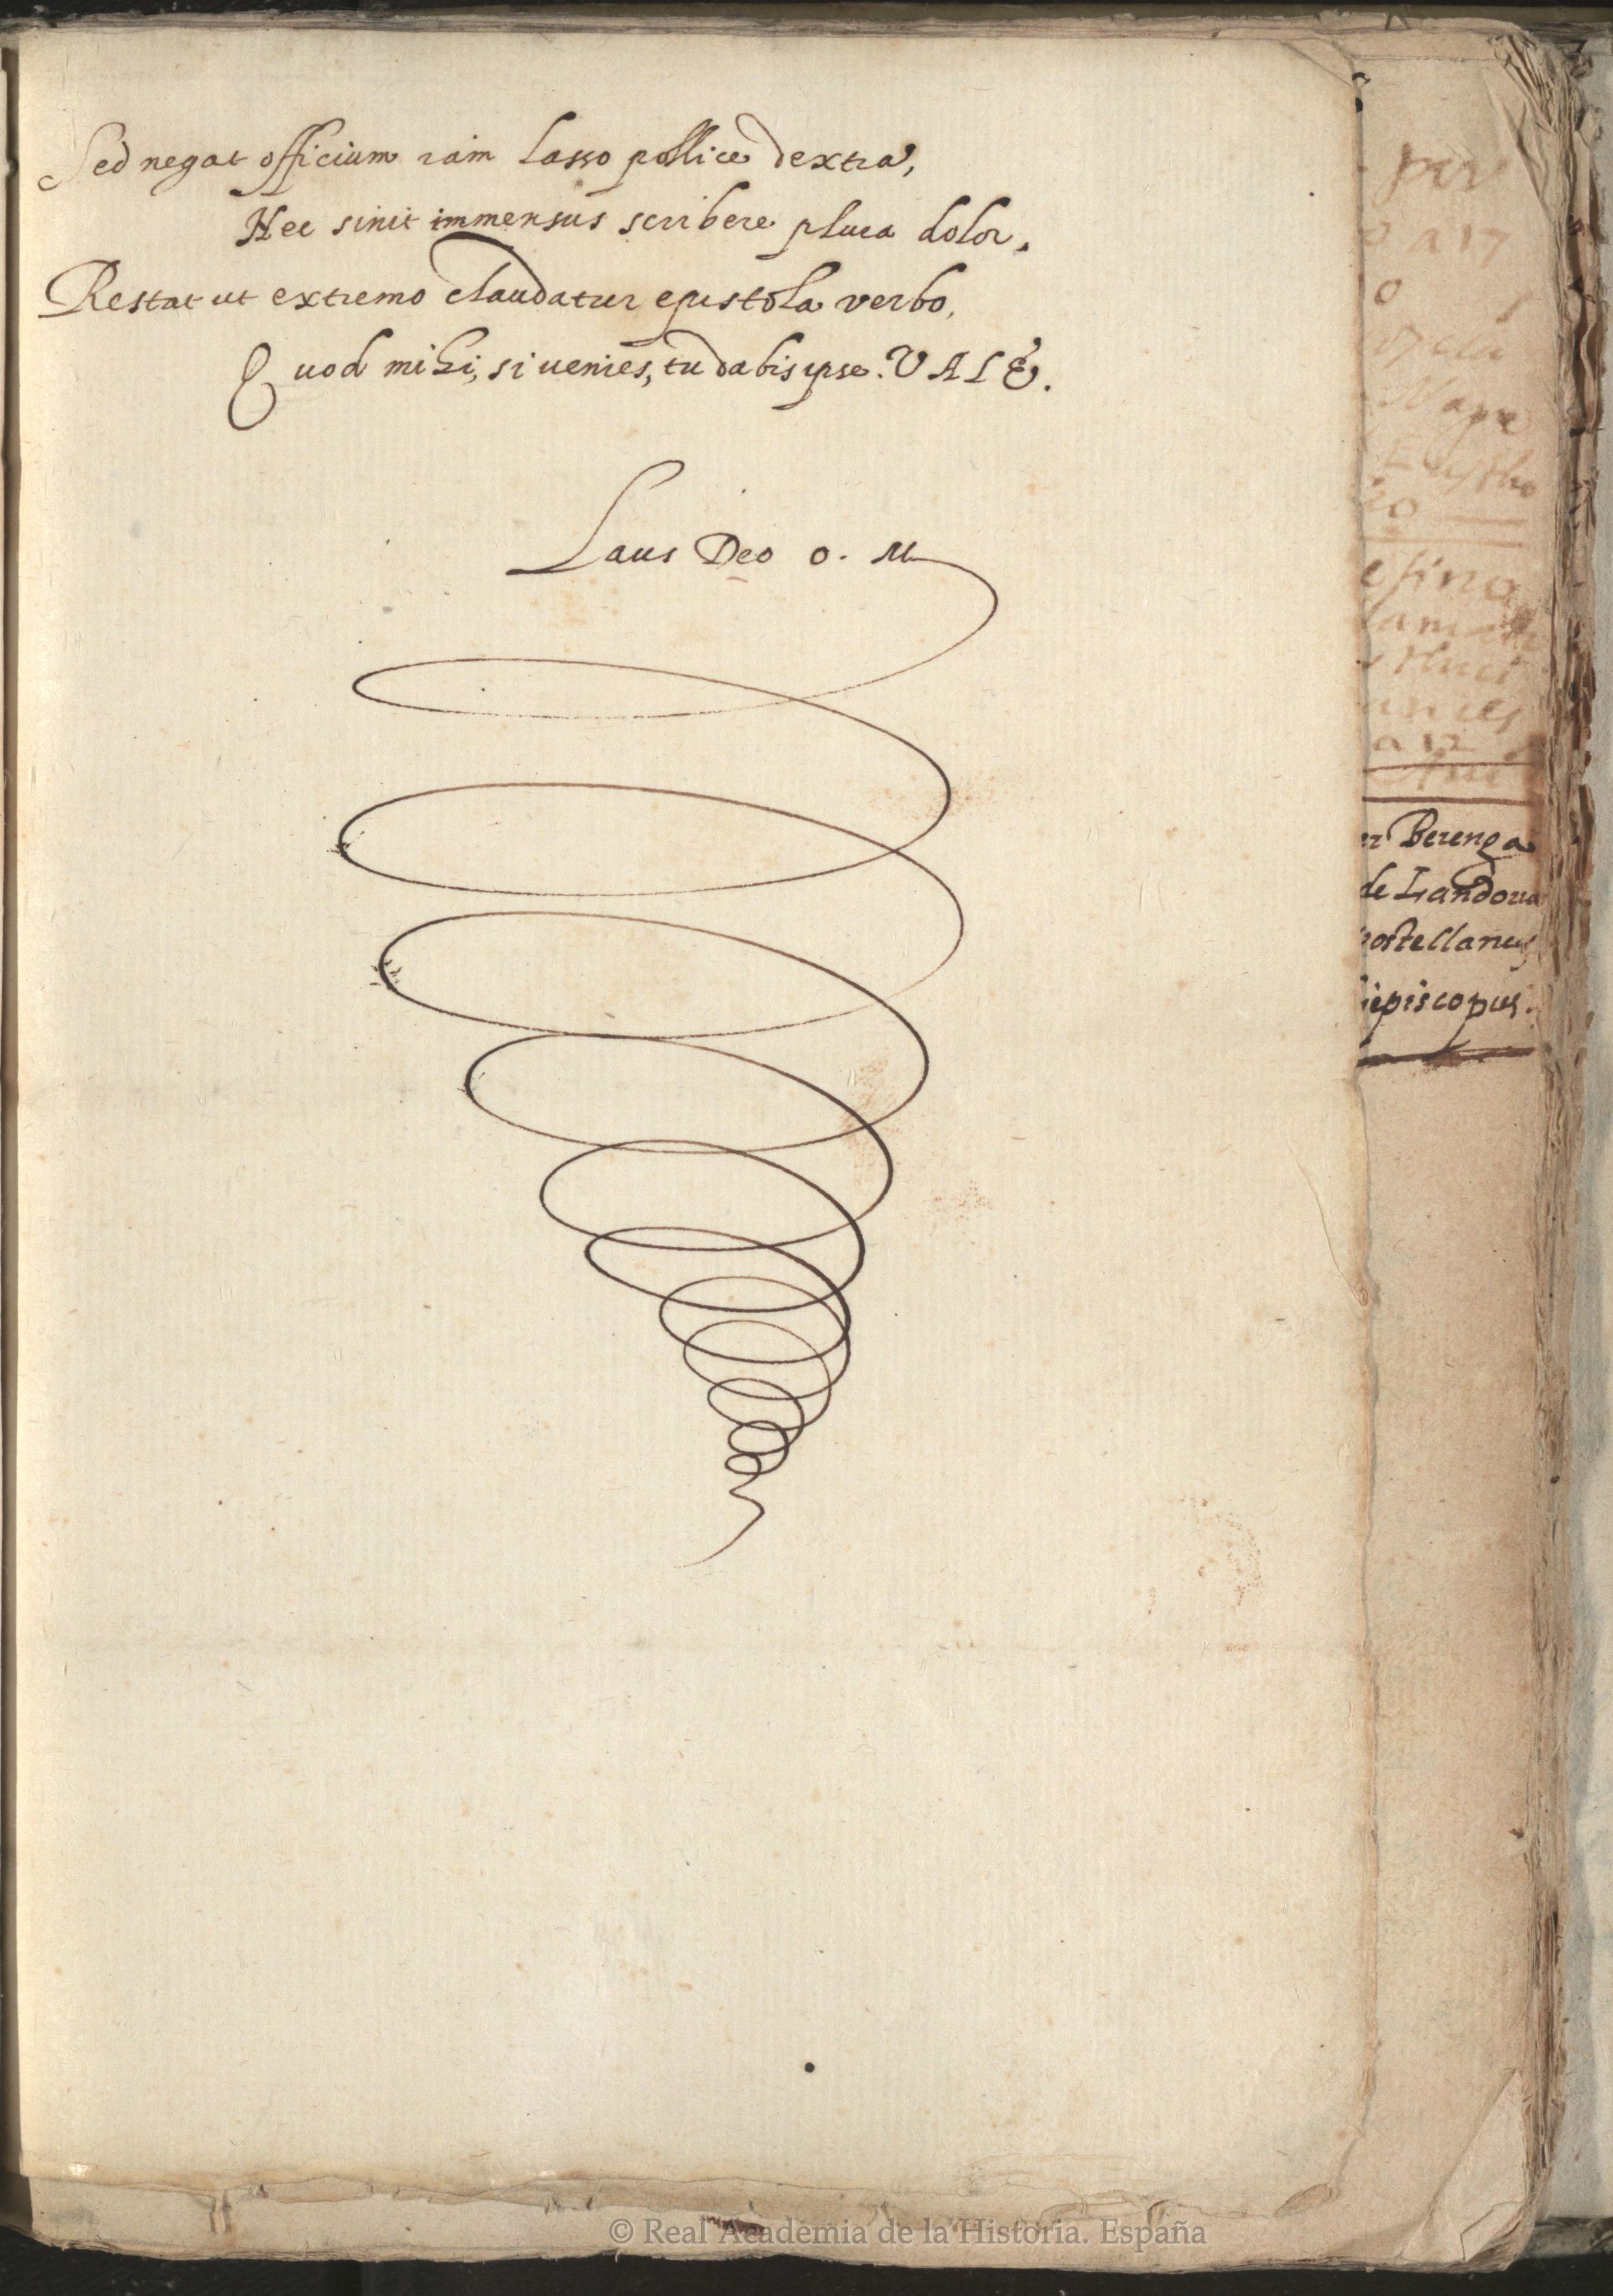 Sed negat officium iam lasso pollice dextra,
Nec sinit immensus scribere plura dolor.
Restat ut extremo claudatur epistola verbo,
Quod mihi, si venies, tu dabis ipse. VALE.
Laus Deo O. M
a 17
o
a 12
er Berenga
de Landora
postellanus
iepiscopus.
© Real Academia de la Historia. España